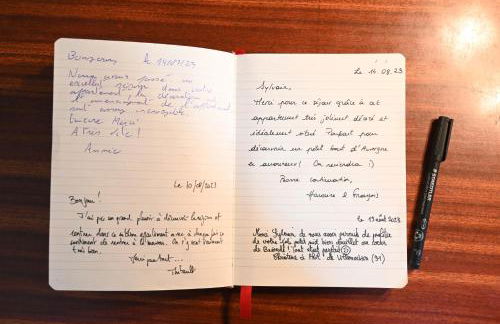 Bonjour Le 14/07/23
Nous avons passé un
excellent séjour dans votre
appartement, la décoration
l'aménagement de l'appartement
sont
Encore Merci
A Très vite !
Annie
Le 10/08/2023
Bonjour !
J'ai pris un grand plaisir à découvrir la région et
rentrer dans ce cocon également avec à chaque fois ce
sentiment de rentrer à la maison. On s'y sent vraiment
très bien.
Merci pour tout...
Thibault
Le 14.08.23
Sylvain,
Merci pour ce séjour grâce à cet
appartement très joliment décoré et
idéalement situé. Parfait pour
découvrir un petit bout d'Auvergne
en amoureux ! On reviendra :)
Bonne continuation,
Marjorie & François
Le 19 août 2023
Merci Sylvain de nous avoir permis de profiter
de votre joli petit nid bien douillet au cœur
de ! Tout était parfait
(31)
STAEDTLER